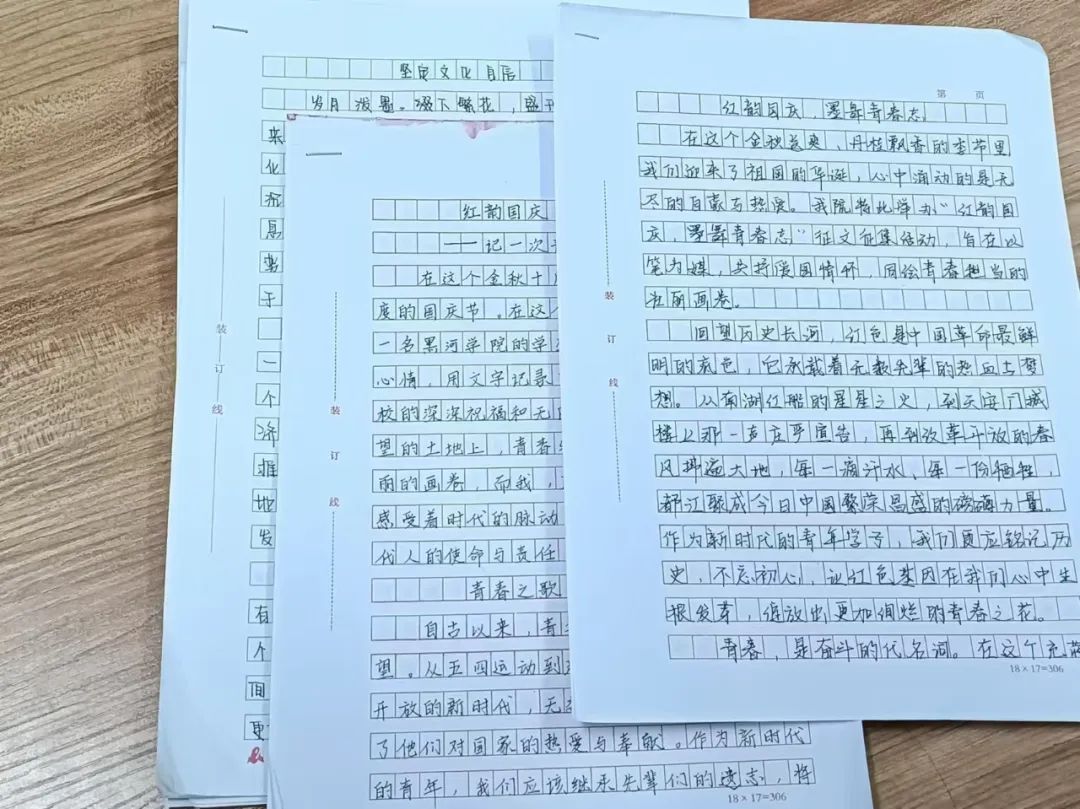 坚定文化自信
岁月泼墨。缀下繁花，盛开
来
化
于
一
个
推
地
发
有
个
间
更
装
订
线
红韵国庆
——记一次
在这个金秋十
度的国庆节。在这个
一名黑河学院的学
心情，用文字记录
校的深深祝福和无
望的土地上，青春
丽的画卷，而我，
感受着时代的脉动
代人的使命与责任
青春之歌
自古以来，青
望。从五四运动到
开放的新时代，无
了他们对国家的热爱与奉献。作为新时代
的青年，我们应该继承先辈们的遗志，将
18×17=306
装
订
线
第 页
红韵国庆，墨舞青春志
在这个金秋送爽、丹桂飘香的季节里
我们迎来了祖国的华诞，心中涌动的是无
尽的自豪与热爱。我院特此举办“红韵国
庆，墨舞青春志”征文征集活动，旨在以
笔为媒，共抒爱国情怀，同绘青春担当的
壮丽画卷。
回望历史长河，红色是中国革命最鲜
明的底色，它承载着无数先辈的热血与梦
想。从南湖红船的星星之火，到天安门城
楼上那一声庄严宣告，再到改革开放的春
风拂遍大地，每一滴汗水、每一份牺牲，
都汇聚成今日中国繁荣昌盛的磅礴力量。
作为新时代的青年学子，我们更应铭记历
史，不忘初心，让红色基因在我们心中生
根发芽，绽放出更加绚烂的青春之花。
青春，是奋斗的代名词。在这个充满
18×17=306
装
订
线